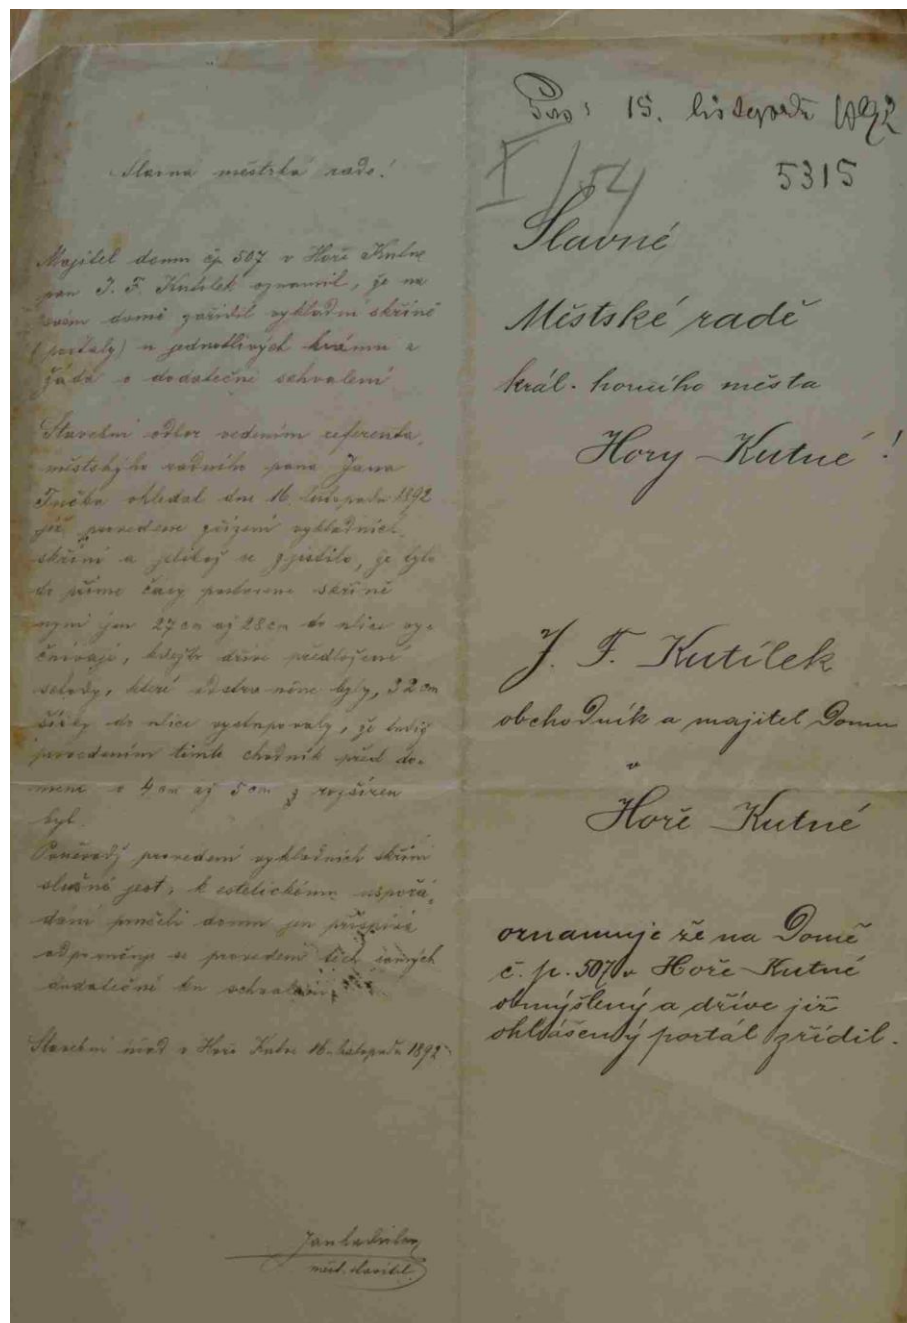 Slavná městská rado!
Majitel domu čp 507 v Hoře Kutné
pan J. F. Kutílek oznámil, že na
svém domě zařídil výkladní skříně
(portály) u jednotlivých krámů a
žádá o dodatečné schválení
Stavební odbor vedením referenta,
městského radního pana Jana
ohledal dne 16. listopadu 1892
již provedené zřízení výkladních
skříní a jelikož se zjistilo, že tyto
do přímé čáry postavené skříně
nyní jen 27 cm až 28 cm do ulice vy-
čnívají, kdežto dříve předložené
schody, které odstraněny byly, 32 cm
šířky do ulice vystupovaly, že tudíž
provedením tímto chodník před do-
mem o 4 cm až 5 cm rozšířen
byl.
Poněvadž provedení výkladních skříní
slušné jest, k estetickému uspořá-
dání průčelí domu jen přispívá
odporučuje se provedení těch
dodatečně ku schválení.
Stavební úřad v Hoře Kutné 16. listopadu 1892
měst. stavitel
15. listopadu 1892
I/54
5315
Slavné
Městské radě
král. horního města
Hory Kutné!
J. F. Kutílek
obchodník a majitel domu
v
Hoře Kutné
oznamuje že na Domě
č. p. 507 v Hoře Kutné
obmýšlený a dříve již
ohlášený portál zřídil.